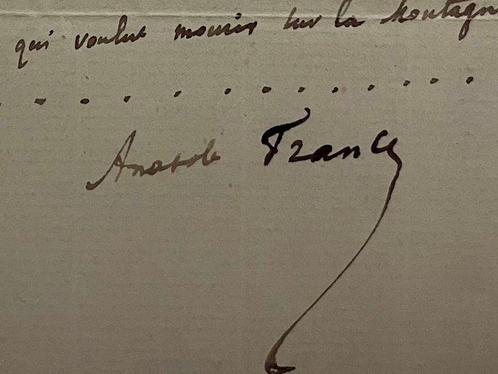 qui voulut mourir sur la Montagn
. . . . . . . . . . . . . .
Anatole France